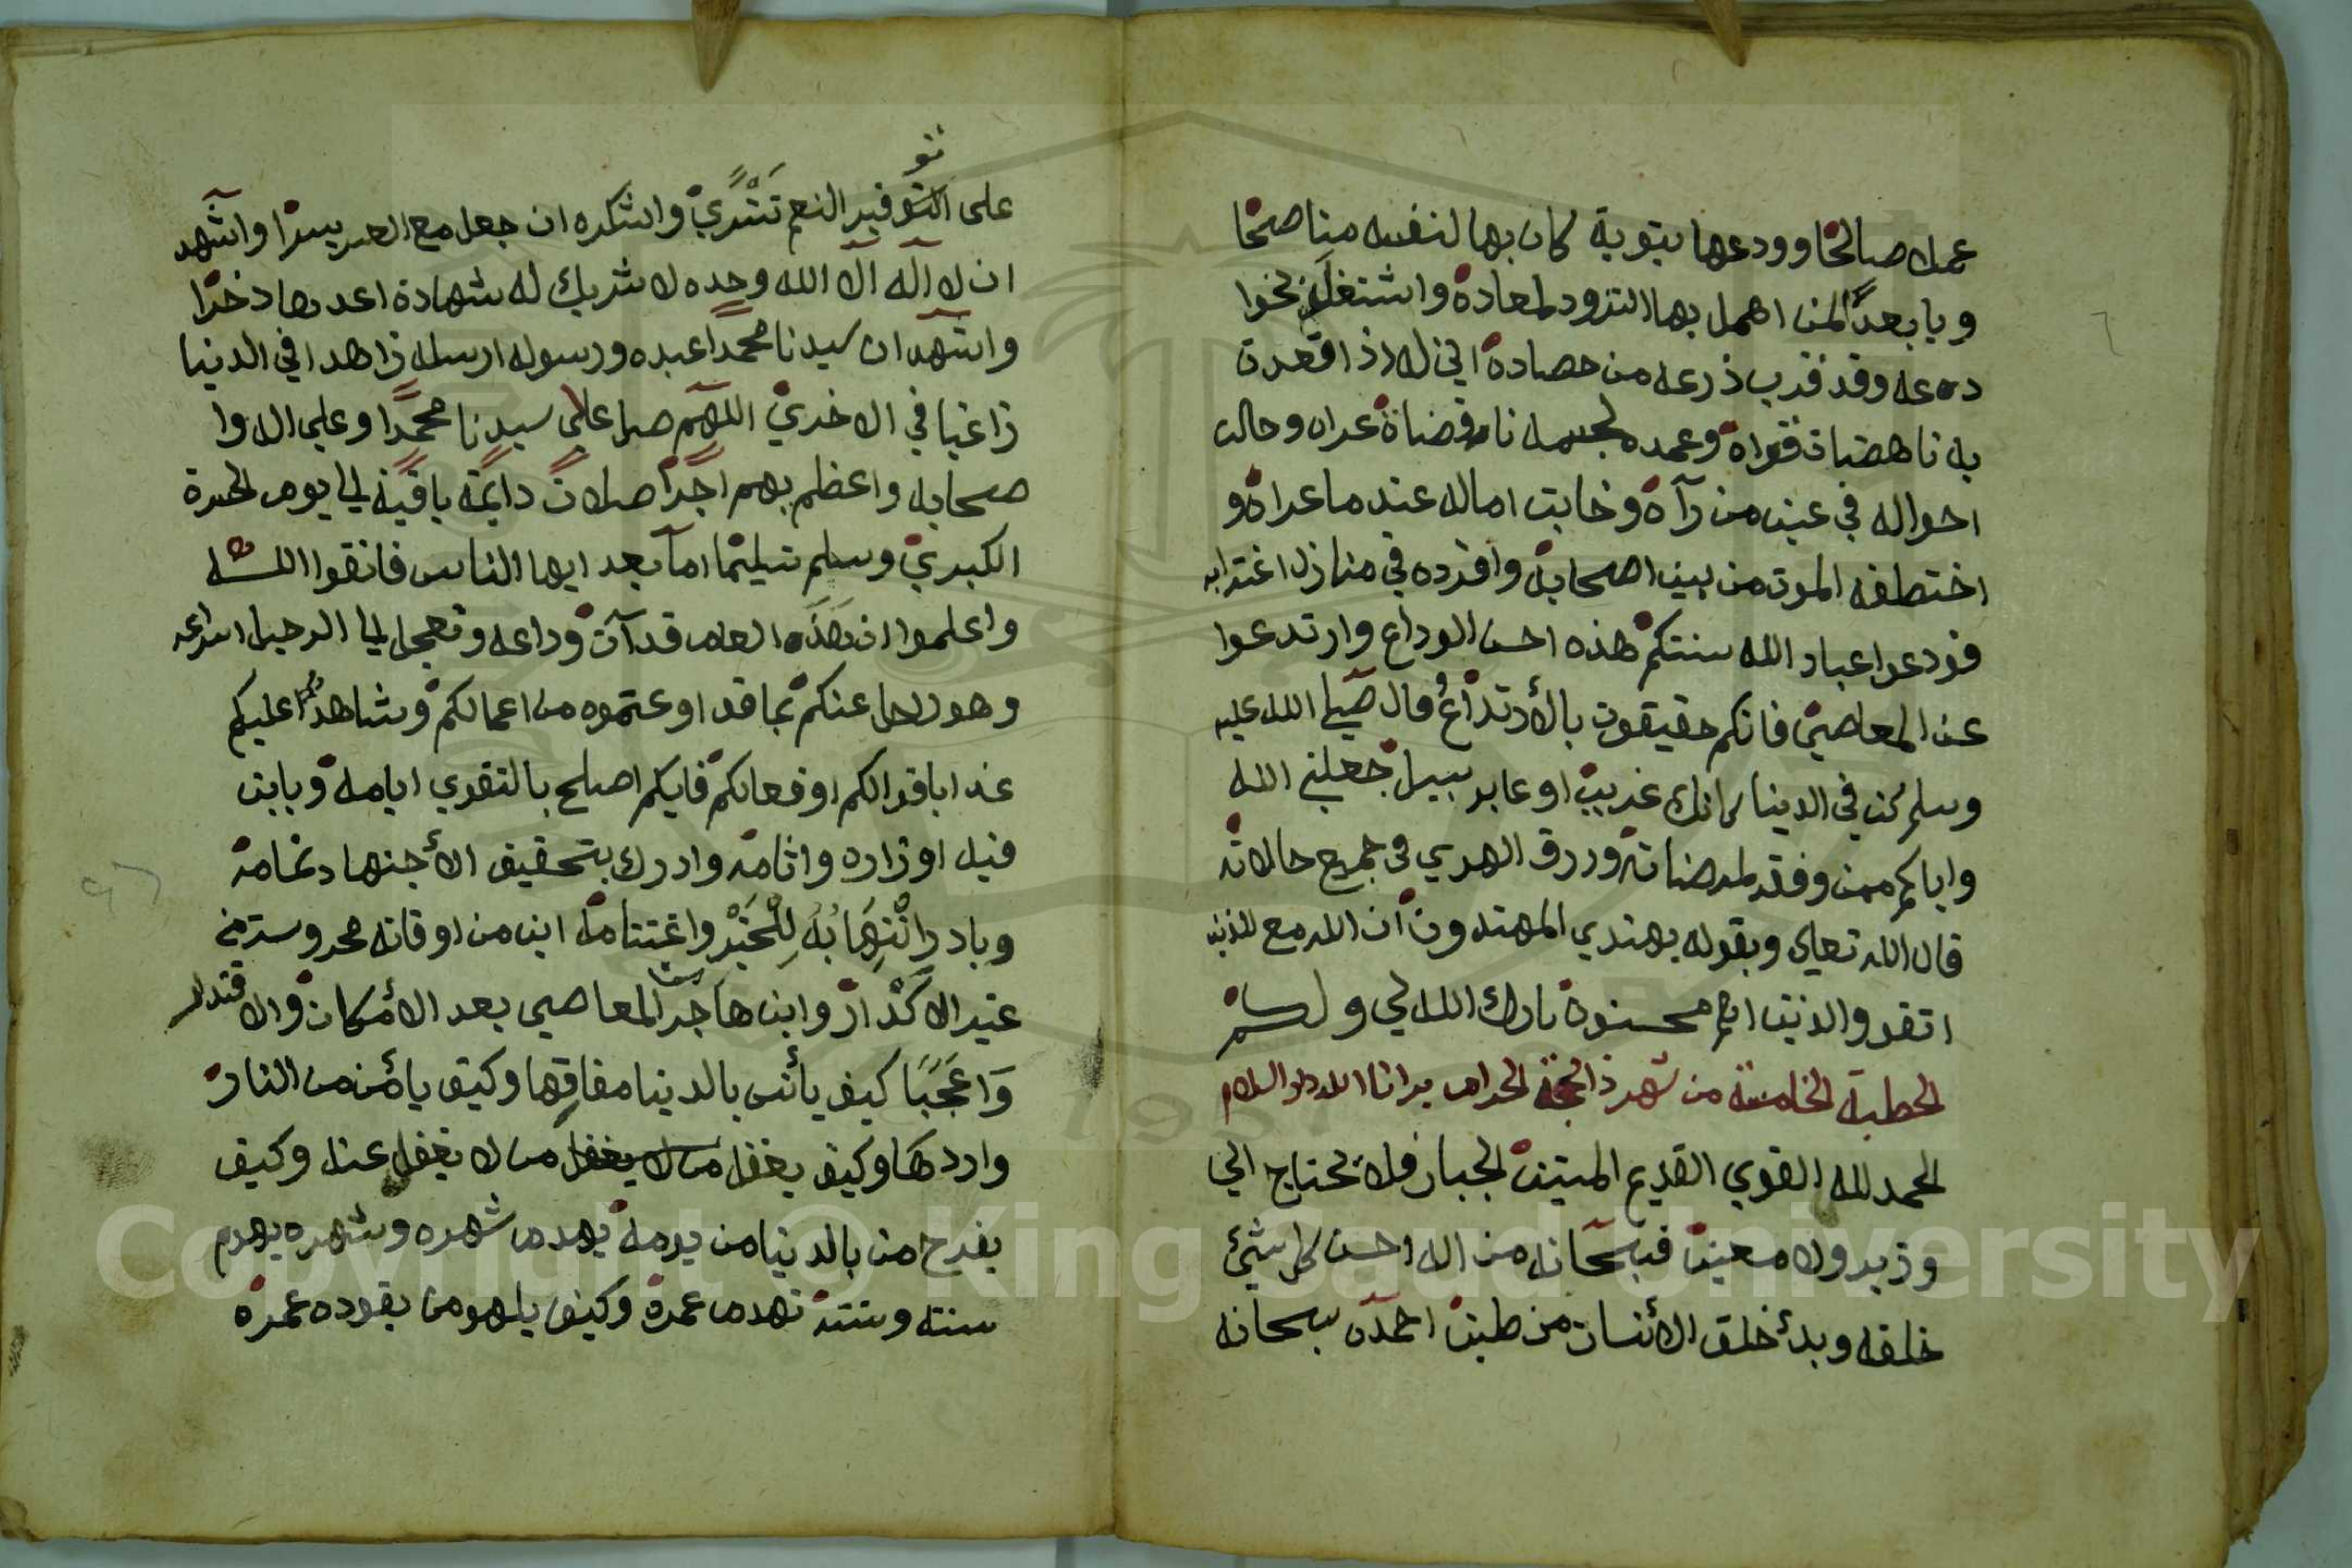 عملا صالحا وودعها بتوبة كان بها لنفسه مناصحا
ويا بعدا لمن اهمل بها التزود لمعاده واشتغل
وقد قرب ذرعه من حصاده اني له اذا قعدت
به ناهضات قواه وعمده لجسمه وحالت
احواله في عين من رآه وخابت اماله عند ما عراه و
اختطفه الموت من بين اصحابه وافرده في منازل اغترابه
فودعوا عباد الله سنتكم هذه احسن الوداع وارتدعوا
عن المعاصي فانكم حقيقون بالأرتداع قال صلي الله عليه
وسلم كن في الدنيا كانك غريب او عابر سبيل جعلني الله
واياكم ممن وفقه لمرضاته ورزق الهدي في جميع حالاته
قال الله تعالي وبقوله يهتدي المهتدون ان الله مع الذين
اتقوا والذين هم محسنون بارك الله لي ولكم
الخطبة الخامسة من شهر ذا الحجة الحرام
الحمد لله القوي القديم المتين الجبار فلا يحتاج الي
وزير ولا معين فسبحانه من اله احسن كل شيئ
خلقه وبدأ خلق الأنسان من طين احمده سبحانه
على التوفير النعم تترى واشكره ان جعل مع العسر يسرا واشهد
ان لا اله الا الله وحده لا شريك له شهادة اعدها ذخرا
واشهد ان سيدنا محمدا عبده ورسوله ارسله زاهدا في الدنيا
راغبا في الاخري اللهم صل علي سيدنا محمدا وعلي اله وا
صحابه واعظم بهم اجرا صلات دايمة باقية الي يوم الحسرة
الكبري وسلم تسليما اما بعد ايها الناس فاتقوا الله
واعلموا ان هذه العام قد آن وداعه وتعجل الي الرحيل اسراعه
وهو راحل عنكم بما قد اودعتموه من اعمالكم وشاهدا عليكم
غدا باقوالكم اوفعالكم فايكم اصلح بالتقوي ايامه
قبل اوزاره واثامه وادرك بتحقيق
وبادر انتهابه للخير واغتنامه اين من اوقاته محروسة من
غير الاكدار واين هاجر المعاصي بعد الأمكان والاقتدار
واعجبا كيف يأنس بالدينا مفارقها وكيف يأمن من النار
واردها وكيف يغفل من لا يغفل من لا يغفل عنه وكيف
يفرح من بالدينا من يومه يهدم شهره وشهره يهدم
سنته وسنته تهدم عمره وكيف يلهو من يقوده عمره